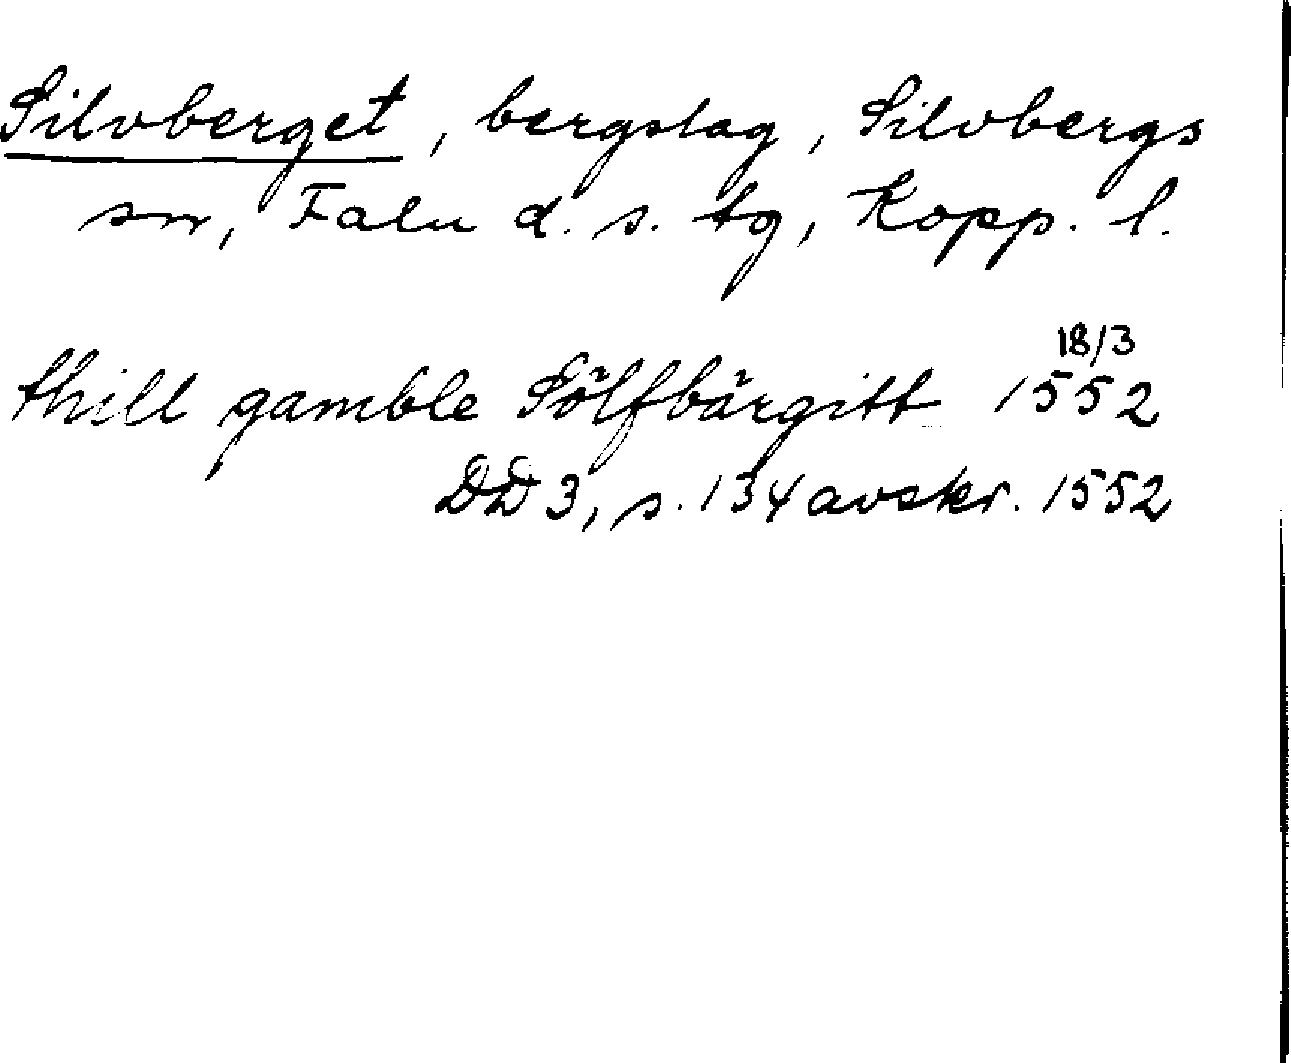 Silvberget, bergslag, Silvbergs
sn, Falu d. s. tg, Kopp. l.
18/3
thill gamble Sölfbärgitt 1552
DD 3, s. 134 avskr. 1552